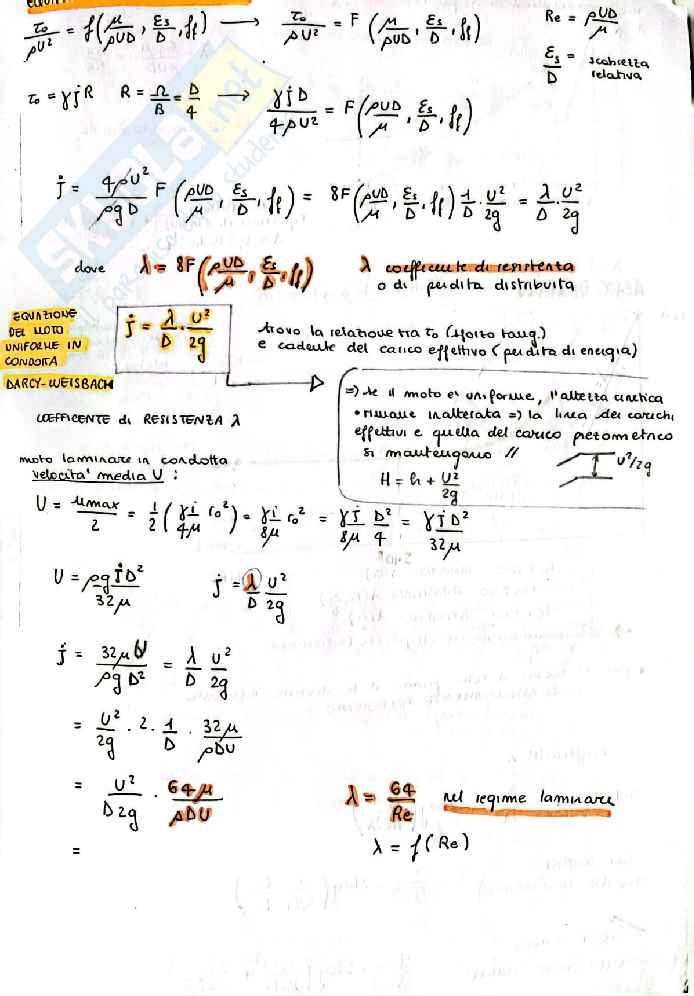 τ₀/ρU² = f(μ/ρUD, εs/D, ff) → τ₀/ρU² = F(μ/ρUD, εs/D, ff) Re = ρUD/μ
εs/D = scabrezza relativa
τ₀ = γjR R = Ω/B = D/4 → γjD/4ρU² = F(ρUD/μ, εs/D, ff)
j = 4ρU²/ρgD F(ρUD/μ, εs/D, ff) = 8F(ρUD/μ, εs/D, ff) 1/D · U²/2g = λ/D · U²/2g
dove λ = 8F(ρUD/μ, εs/D, ff) λ coefficente di resistenza
o di perdita distribuita
EQUAZIONE
DEL MOTO
UNIFORME IN
CONDOTTA
DARCY-WEISBACH
j = λ/D · U²/2g
trovo la relazione tra τ₀ (sforzo tang.)
e cadente del carico effettivo (perdita di energia)
=) se il moto e' uniforme, l'altezza cinetica
• rimane inalterata =) la linea dei carichi
effettivi e quella del carico piezometrico
si mantengono //
H = h + U²/2g
U²/2g
COEFFICENTE di RESISTENZA λ
moto laminare in condotta
velocita' media U :
U = umax/2 = 1/2 (γj/4μ r₀²) = γj/8μ r₀² = γj/8μ D²/4 = γjD²/32μ
U = ρgjD²/32μ j = λ/D U²/2g
j = 32μU/ρgD² = λ/D U²/2g
= U²/2g · 2 · 1/D · 32μ/ρDU
= U²/D2g · 64μ/ρDU λ = 64/Re nel regime laminare
= λ = f(Re)
SKUOLA.net